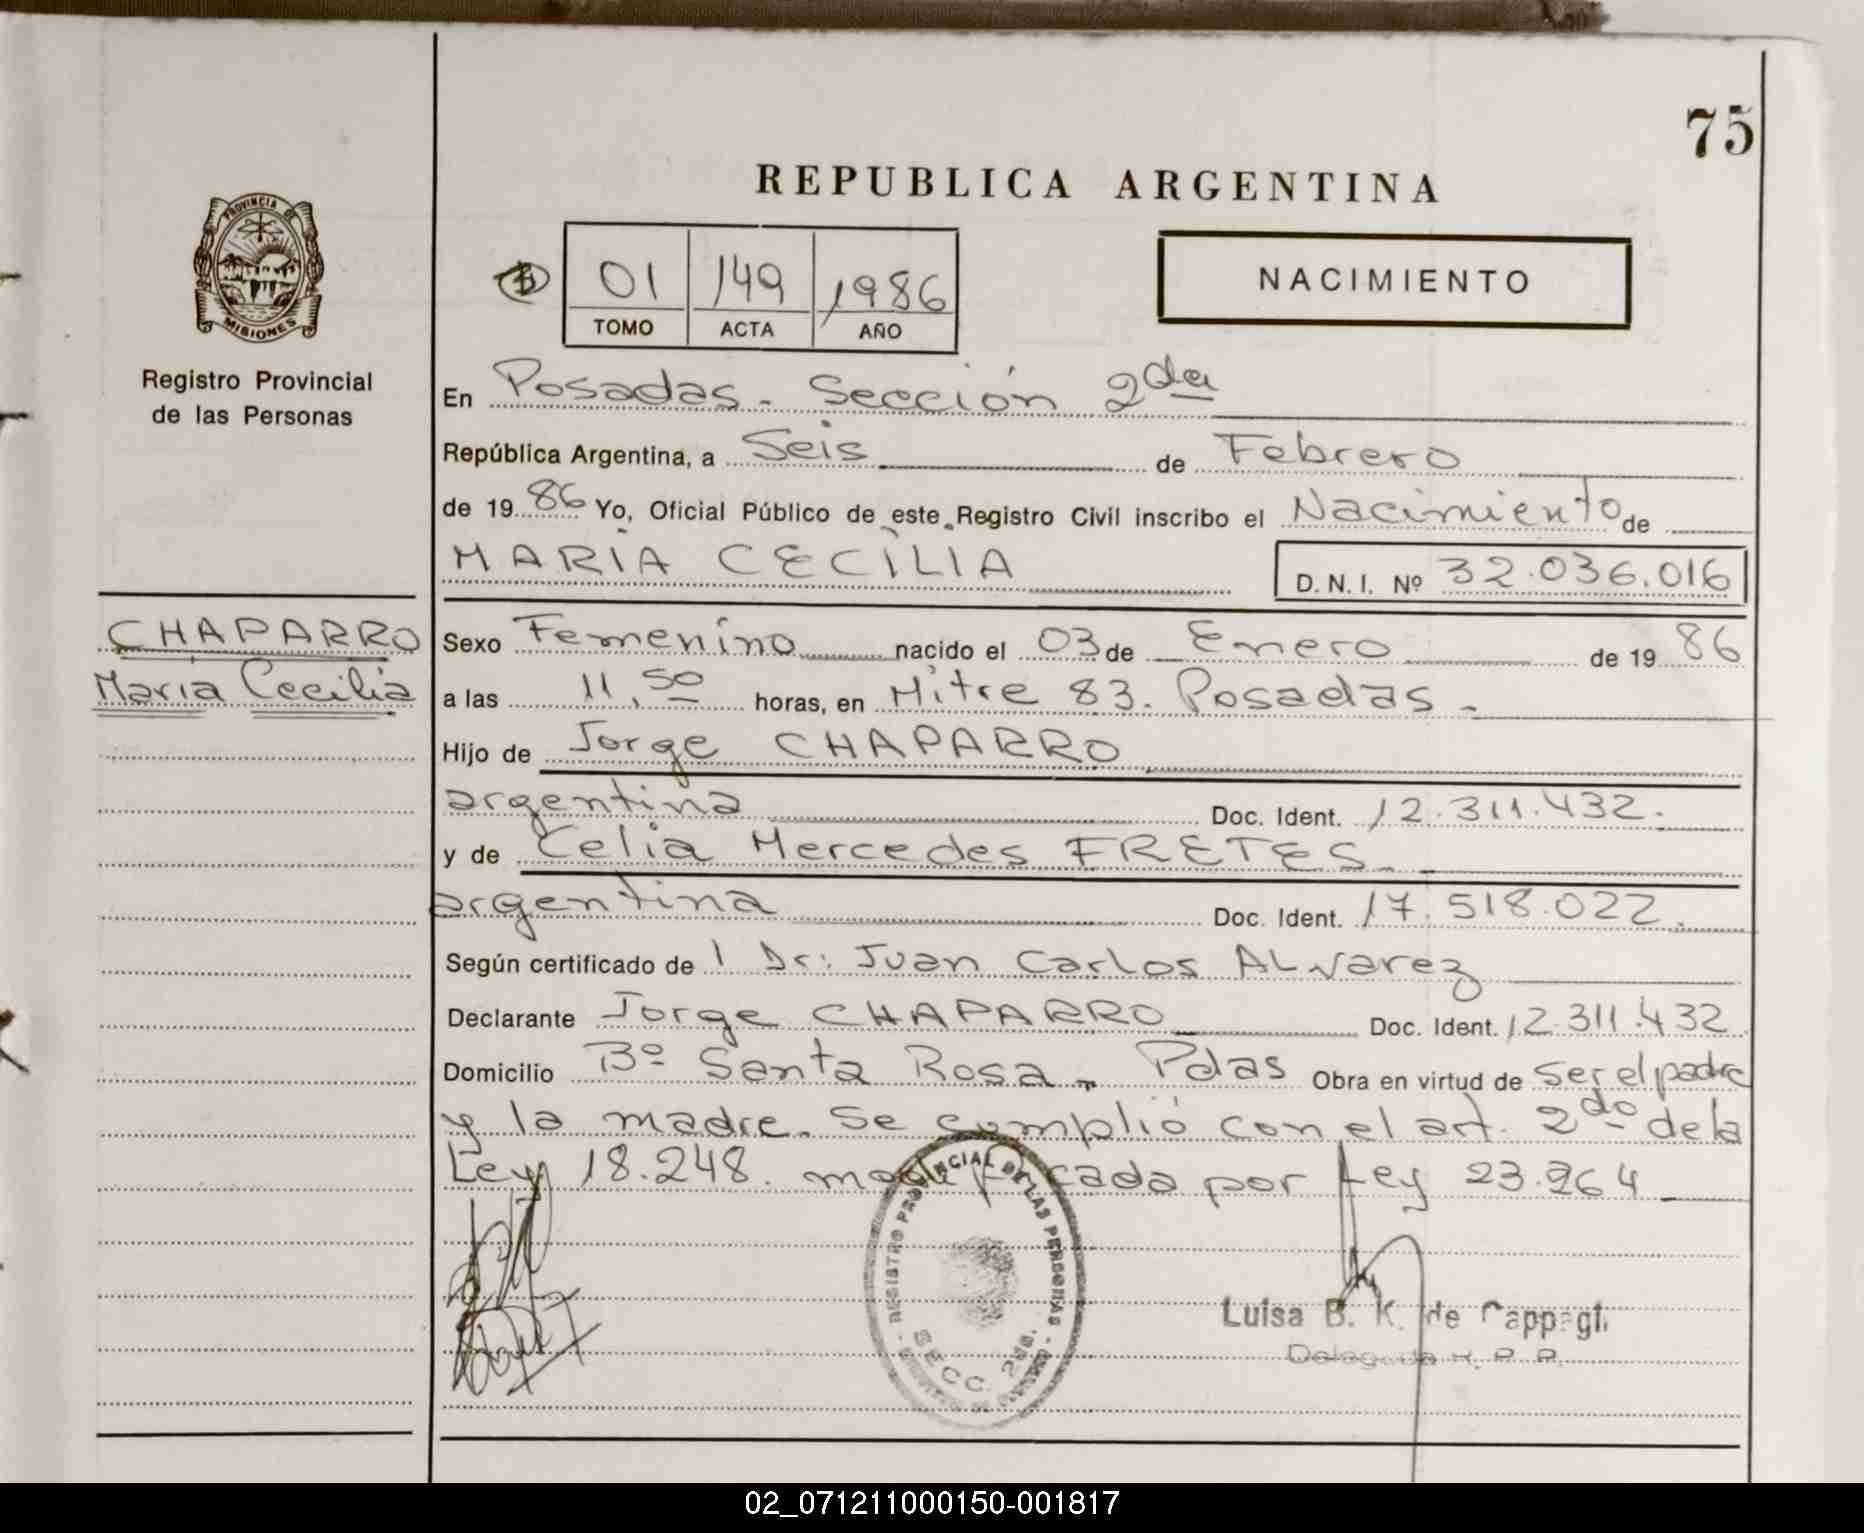 75
REPUBLICA ARGENTINA
PROVINCIA DE
MISIONES
Registro Provincial
de las Personas
01 149 1986
TOMO ACTA AÑO
NACIMIENTO
En Posadas - Sección 2da
República Argentina, a Seis de Febrero
de 19 86 Yo, Oficial Público de este Registro Civil inscribo el Nacimiento de
MARÍA CECÍLIA D. N. I. Nº 32.036.016
CHAPARRO
María Cecilia
Sexo Femenino nacido el 03 de Enero de 19 86
a las 11,50 horas, en Mitre 83. Posadas -
Hijo de Jorge CHAPARRO
argentina Doc. Ident. 12.311.432.
y de Celia Mercedes FRETES
argentina Doc. Ident. 17.518.022.
Según certificado de l Dr: Juan Carlos ALvarez
Declarante Jorge CHAPARRO Doc. Ident. 12.311.432
Domicilio Bº Santa Rosa - Pdas Obra en virtud de ser el padre
y la madre. Se cumplió con el art. 2do de la
Ley 18.248. modificada por Ley 23.264
REGISTRO PROVINCIAL DE LAS PERSONAS
SECC. 2da.
Luisa B. K. de Cappagli
Delegada R. P. P.
02_071211000150-001817